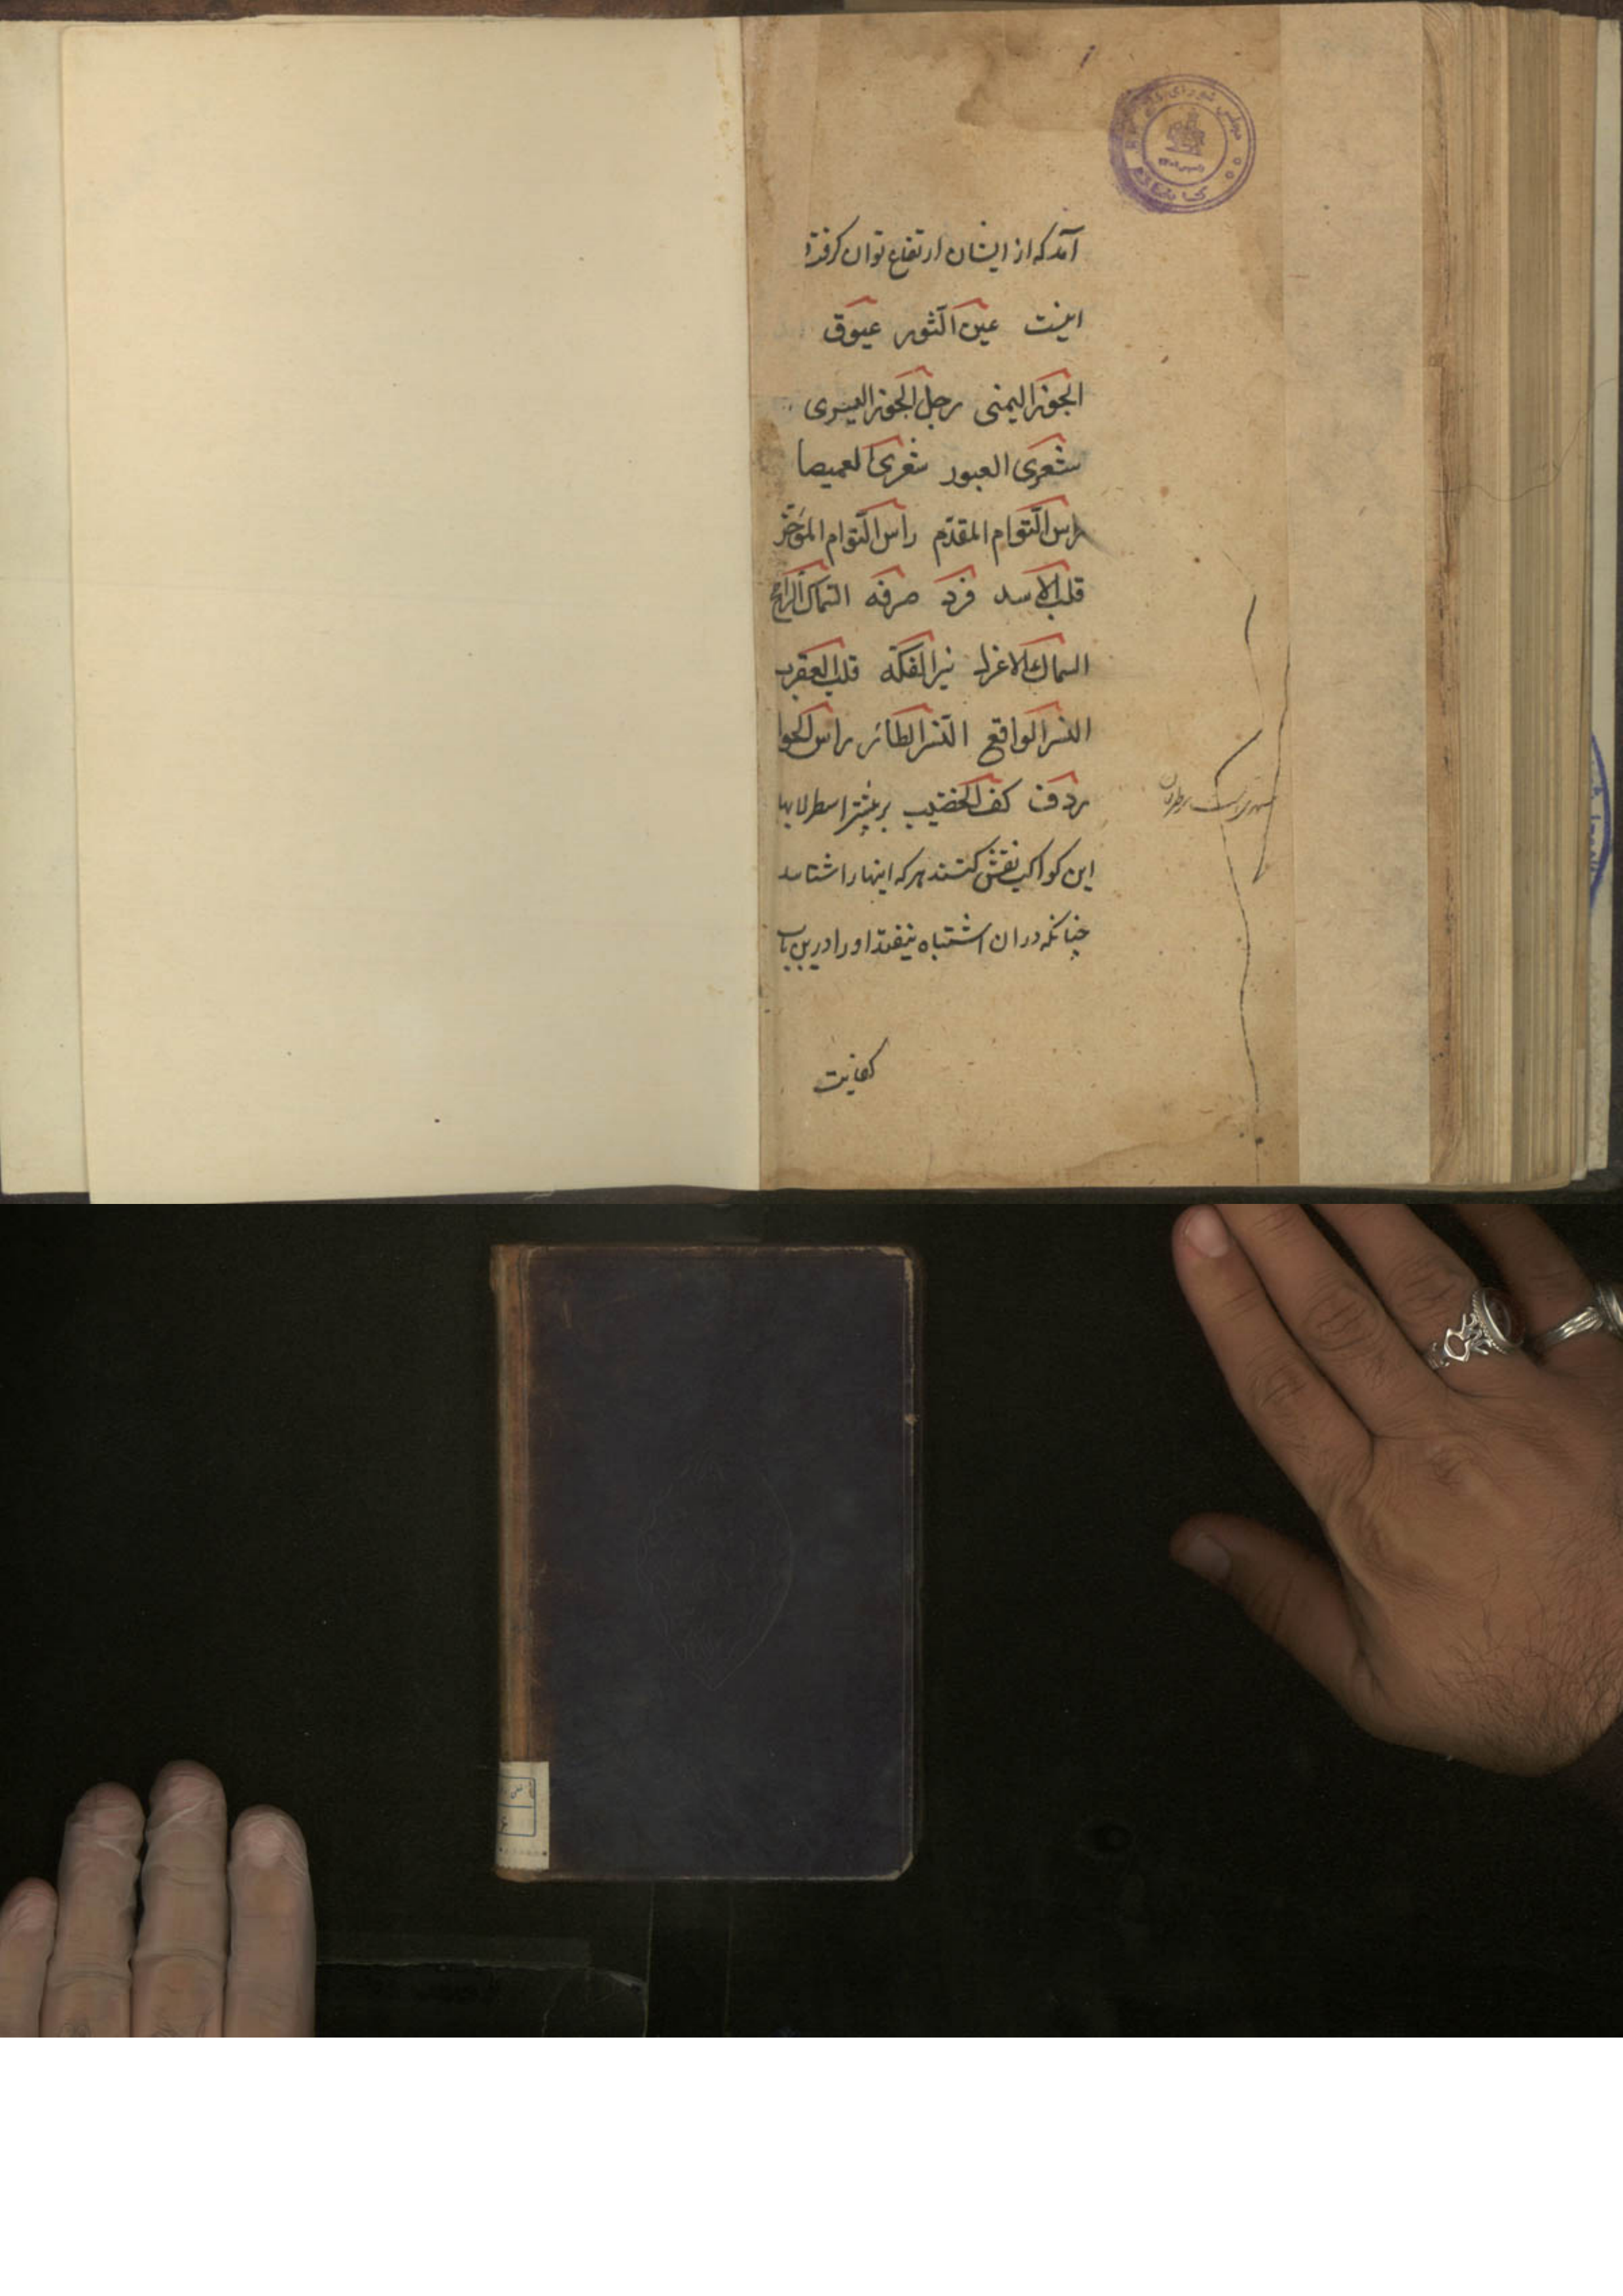 آمد که از ایشان ارتفاع توان گرفت و
اینست عین الثور عیوق
الجوزا الیمنی رجل الجوزا الیسری
شعری العبور شعری العمیصا
راس التوام المقدم رأس التوام المؤخر
قلب الاسد فرد صرفه السماک الرامح
السماک الاعزل نیر الفکه قلب العقرب
النسر الواقع النسر الطائر راس الحوا
ردف کف الخضیب بر بیشتر اسطرلابها
این کواکب نقش کنند هر که اینها را شناسد
چنانکه در ان اشتباه نیفتد او را درین باب
کفایت
مجلس شورای